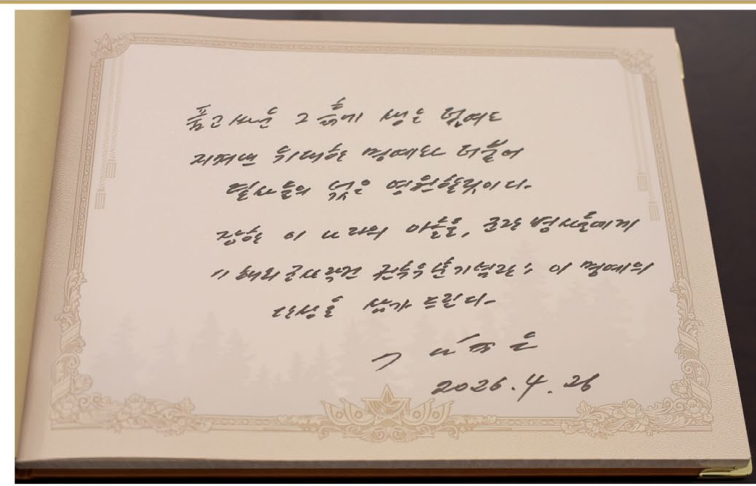 품고 싸운 그 흙에 생은 젖여도
지켜낸 위대한 명예와 더불어
열사들의 넋은 영원할것이다.
장한 이 나라의 아들들, 군관 병사들에게
《해외군사작전 전투위훈기념관》 이 명예의
단상을 삼가 드린다.
김정은
2026.4.26